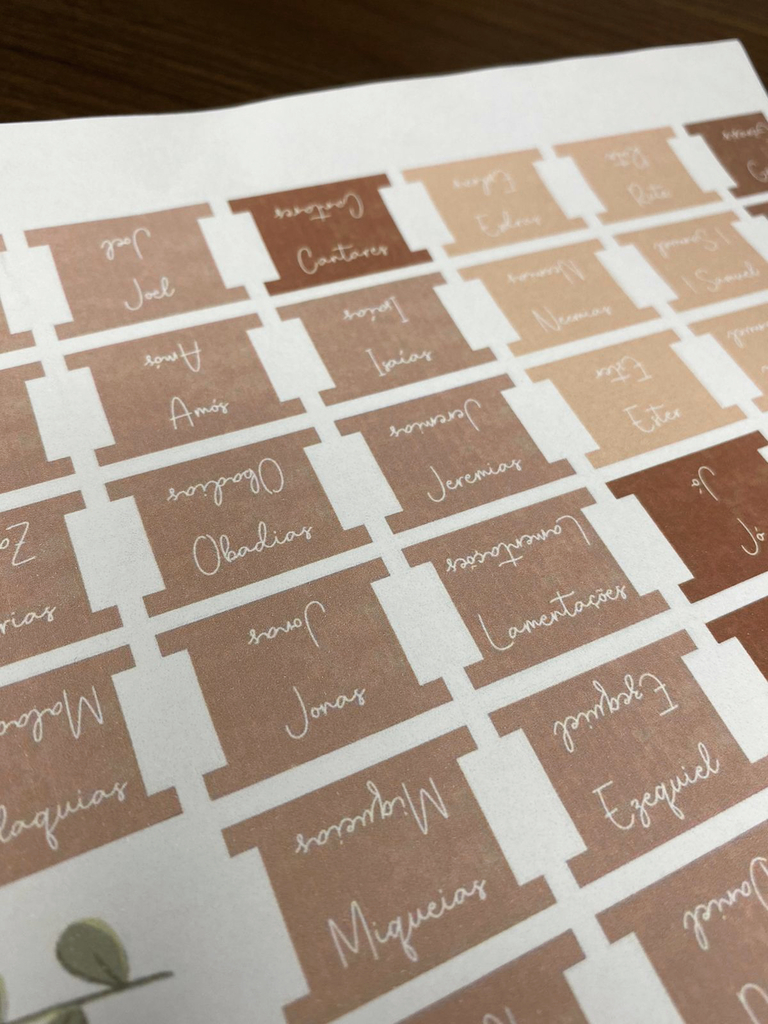 Joel
Joel
Cantares
Cantares
Esdras
Esdras
Rute
Rute
Amós
Amós
Isaías
Isaías
Neemias
Neemias
1 Samuel
1 Samuel
Obadias
Obadias
Jeremias
Jeremias
Ester
Ester
Za
rias
Jonas
Jonas
Lamentações
Lamentações
Jó
Jó
Malaq
laquias
Miqueias
Miqueias
Ezequiel
Ezequiel
Daniel